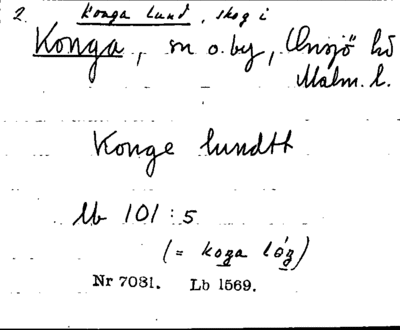 2. Konga Lund, skog i
Konga, sn o. by, Onsjö hd
Malm. l.
Konge lundtt
Lb 101 : 5
(= koga lóg)
Nr 7081. Lb 1569.